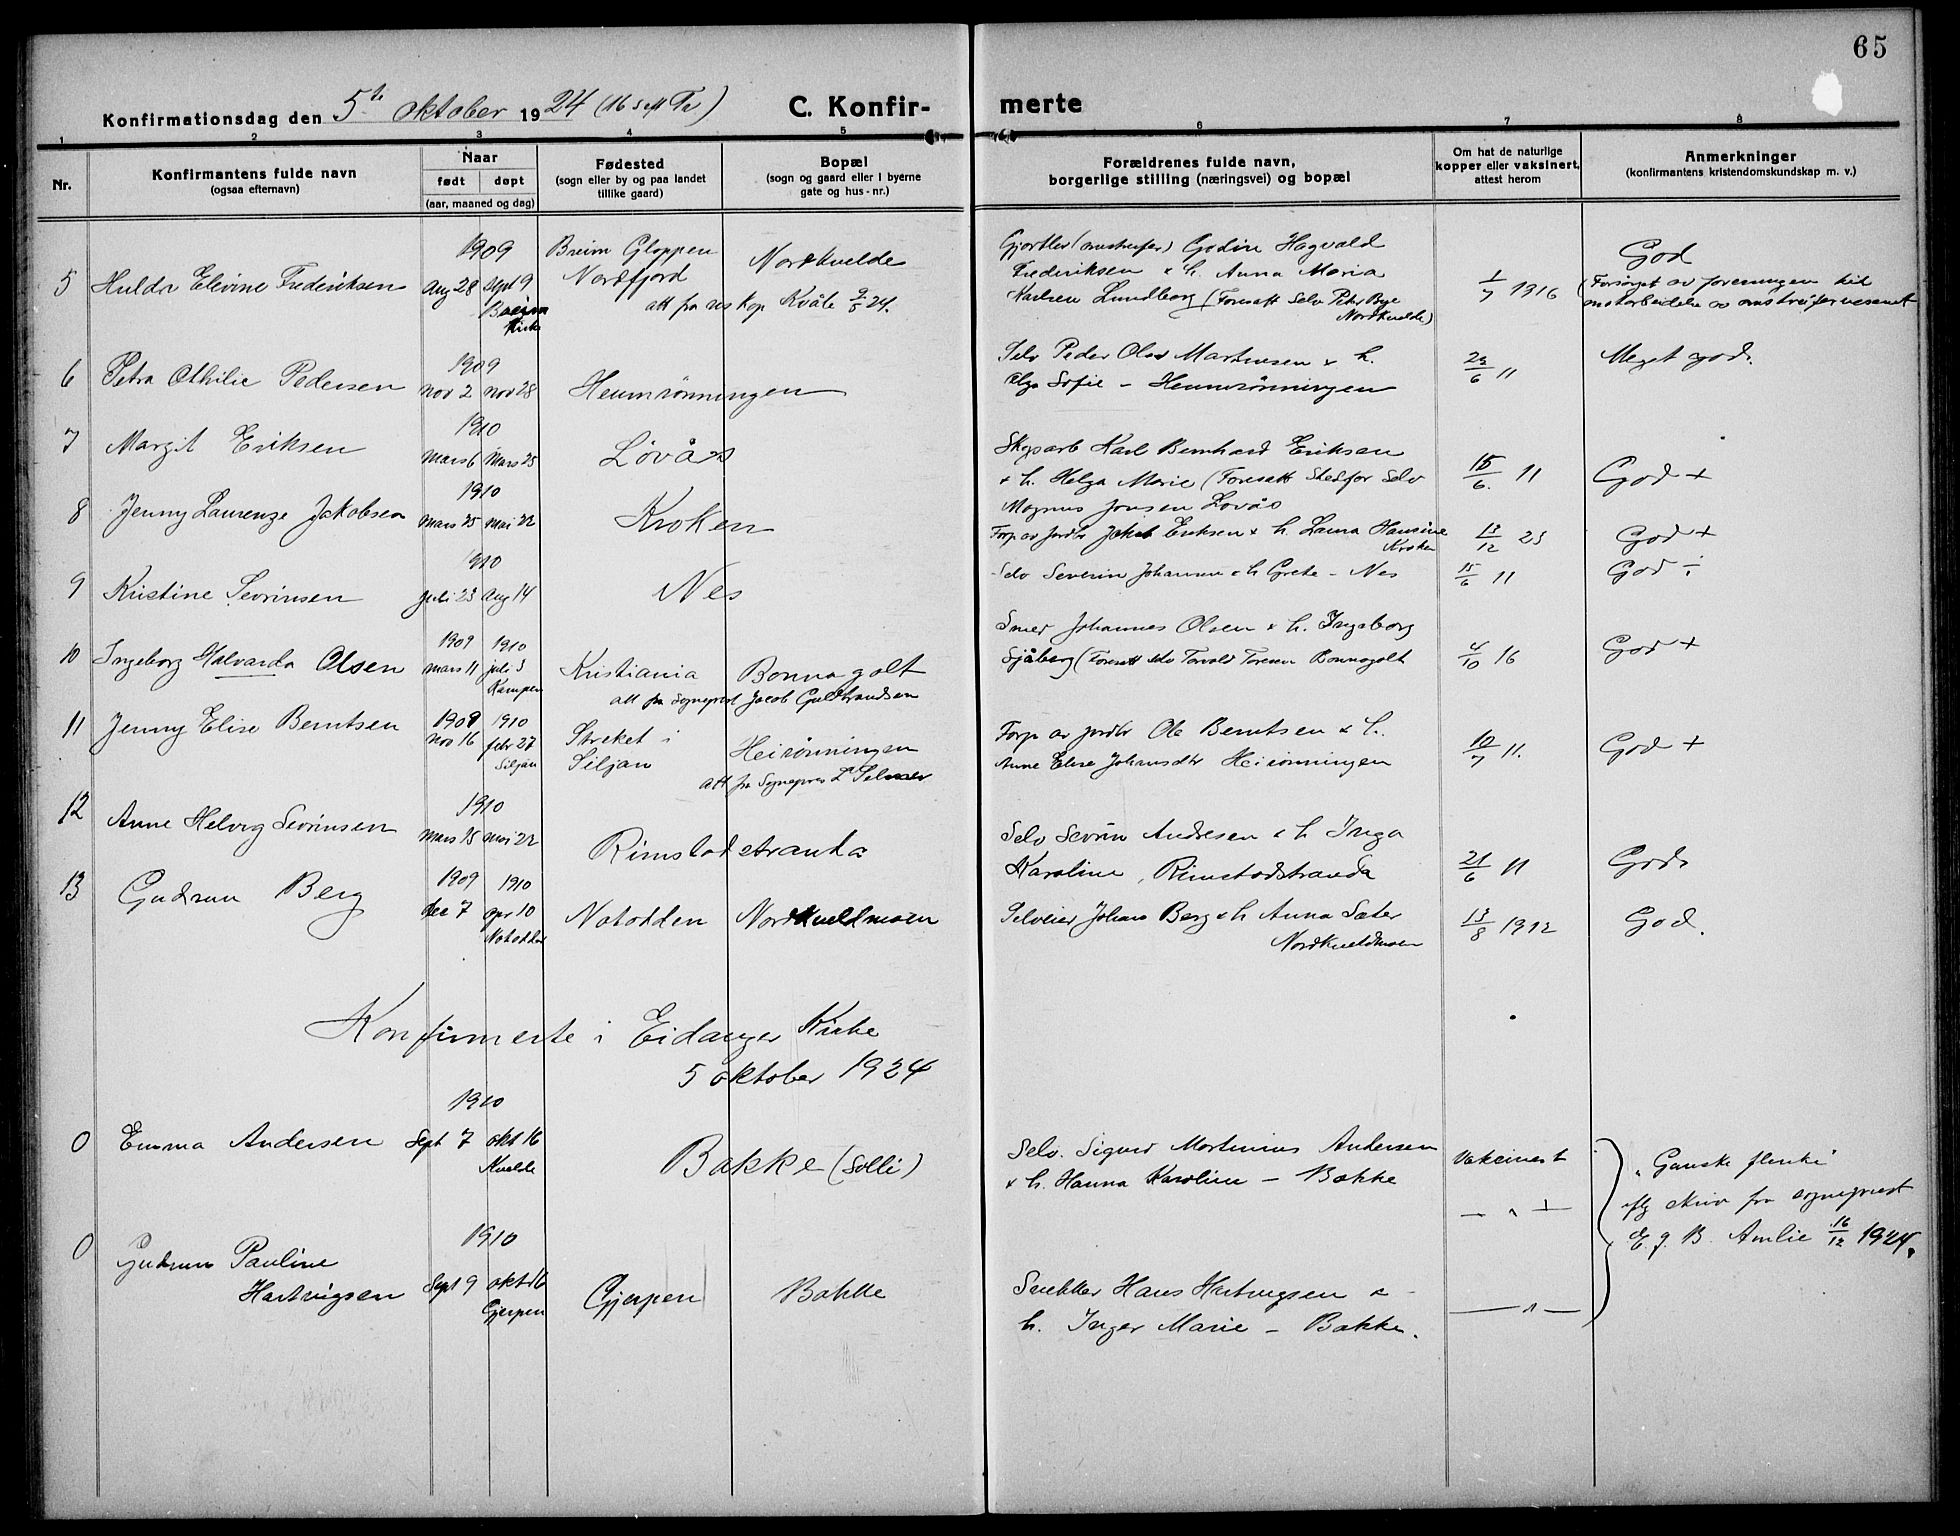 65
Konfirmationsdag den 5te oktober 1924 (16 s eft Tr) C. Konfirmerte
1 2 3 4 5 6 7 8
Nr.
Konfirmantens fulde navn
(ogsaa efternavn)
Naar
født døpt
(aar, maaned og dag)
Fødested
(sogn eller by og paa landet
tillike gaard)
Bopæl
(sogn og gaard eller i byerne
gate og hus-nr.)
Forældrenes fulde navn,
borgerlige stilling (næringsvei) og bopæl
Om hat de naturlige
kopper eller vaksinert,
attest herom
Anmerkninger
(konfirmantens kristendomskundskap m. v.)
5 Hulda Elevine Frederiksen
1909
Aug 28 Sept 9
Breim
Kirke
Breim Gloppen
Nordfjord
Nordkvelde
att fra res kap Kvåle 9/5 24.
Gjørtler (omstreifer) Godin Hagvald
Frederiksen & h. Anna Maria
Karlsen Lundberg (Foresatt Selv Peter Bye
Nordkvelde)
1/7 1916
God
(Forsørget av foreningen til
motarbeidelse av omstreifervesenet
6 Petra Othilie Pedersen
1909
nov 2 nov 28
Heumrönningen
Selv Peder Olav Martinsen & h.
Olga Sofie - Heumrönningen
23/6 11
Meget god.
7 Margit Eriksen
1910
mars 6 Mars 25
Lövås
Skogsarb Karl Bernhard Eriksen
& h. Helga Marie (Foresatt Stedfar Selv
Magnus Jonsen Lovås
15/6. 11
God +
8 Jenny Laurenze Jakobsen
1910
mars 25 mai 22
Kroken
Forp av jordbr Jakob Eriksen & h. Laura Hansine
Kroken
13/12 23
God +
9 Kristine Sevrinsen
1910
juli 23 Aug 14
Nes
Selv Severin Johansen & h Grete - Nes
15/6 11
God ÷
10 Ingeborg Halvarda Olsen
1909 1910
mars 11 juli 3
Kampen
Kristiania Bonnegolt
att fra Sogneprest Jacob Gulbrandsen
Smed Johannes Olsen & h. Ingeborg
Sjåberg (Foresatt selv Torvald Toresen Bonnegolt
4/10 16
God +
11 Jenny Elise Berntsen
1909 1910
nov 16 febr 27
Siljan
Streket i
Siljan
Heirönningen
att fra Sognepres L Selmer
Forp av jordbr Ole Berntsen & h.
Anne Elise Johansdtr Heirönningen
10/7 11.
God +
12 Anne Helvig Sevrinsen
1910
mars 15 mai 22
Rimstadstranda
Selv Sevrin Andresen & h Inga
Karoline, Rimstadstranda
21/6 11
God.
13 Gudrun Berg
1909 1910
dec 7 apr 10
Notodden
Notodden Nordkveldmoen
Selveier Johan Berg & h Anna Sæter
Nordkveldmoen
13/8 1912
God.
Konfirmerte i Eidanger Kirke
5 oktober 1924
0 Emma Andersen
1910
Sept 7 okt 16
Kvelde
Bakke (Solli)
Selv. Sigurd Martinius Andersen
& h. Hanna Karoline - Bakke
Vakcinert
„Ganske flink"
iflg skriv fra sogneprest
E. g. B. Amlie 16/12 1924.
0 Gudrun Pauline
Hartvigsen
1910
Sept 9 okt 16
Gjerpen
Gjerpen Bakke
Snekker Hans Hartvigsen &
h. Inger Marie - Bakke.
— „ —